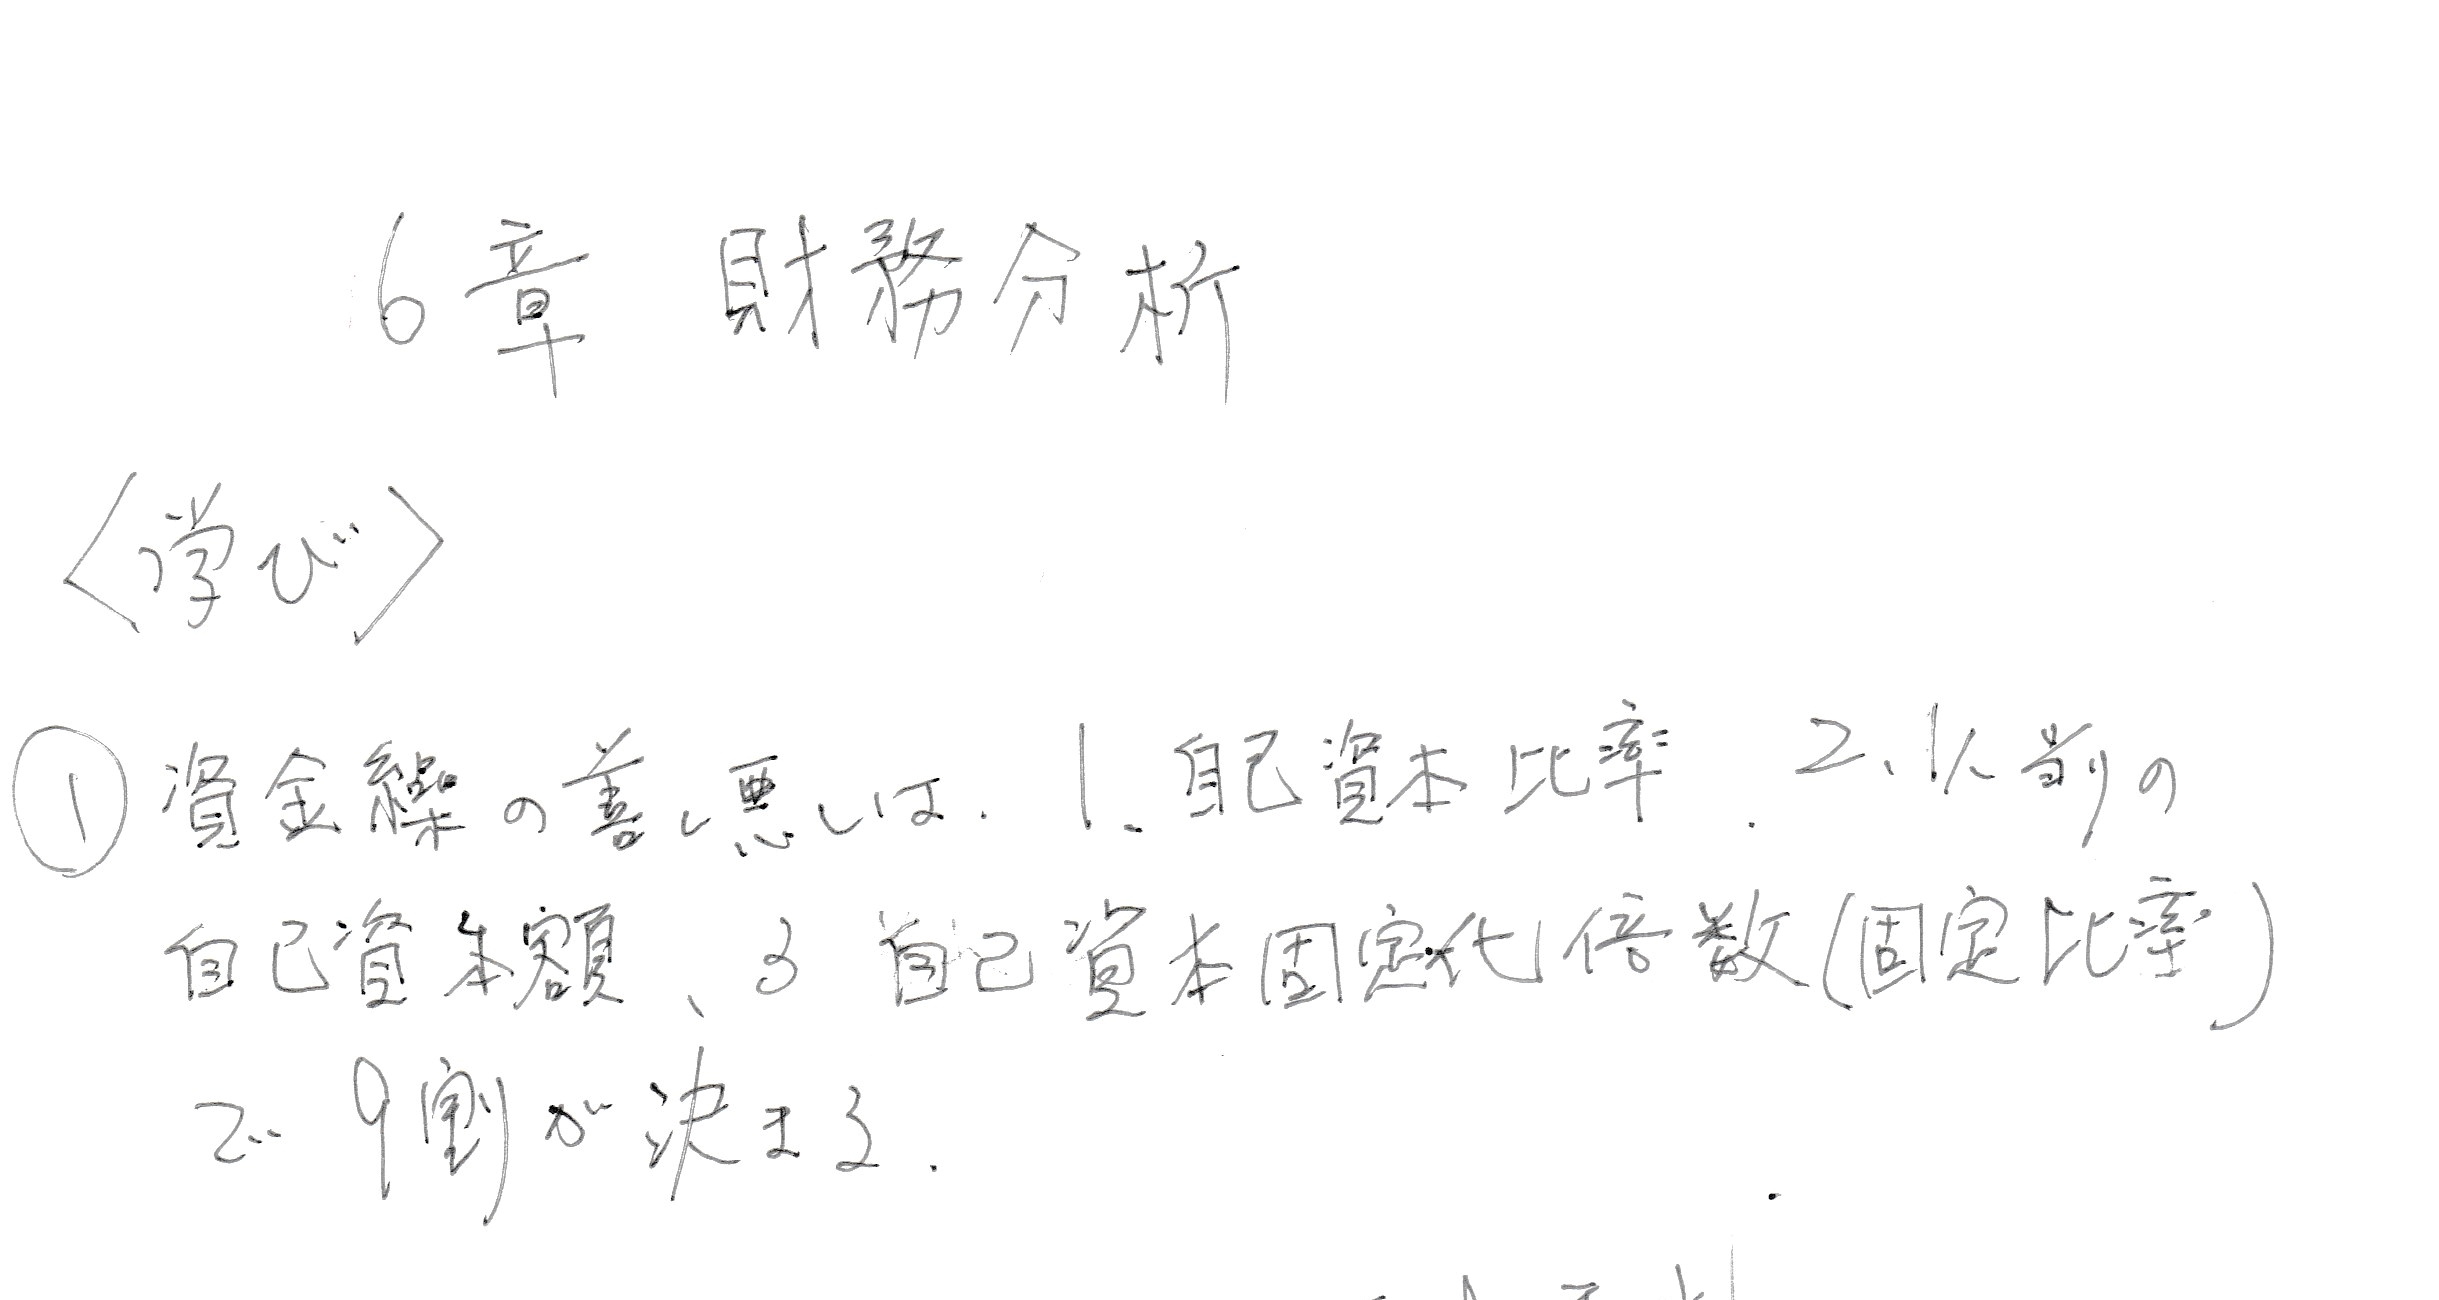 6章 財務分析
〈学び〉
① 資金繰の善し悪しは. 1、自己資本比率. 2、1人当りの
自己資本額、3 自己資本固定化倍数(固定比率)
で 9割が決まる.